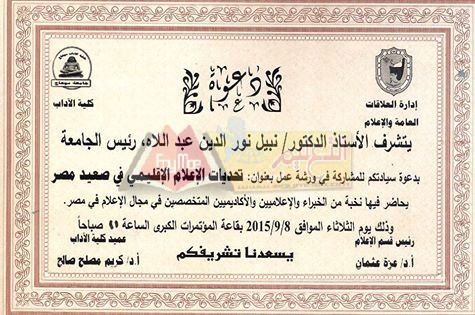 جامعة سوهاج
كلية الآداب
إدارة العلاقات
العامة والإعلام
دعوة
يتشرف الأستاذ الدكتور/ نبيل نور الدين عبد اللاه، رئيس الجامعة
بدعوة سيادتكم للمشاركة في ورشة عمل بعنوان: تحديات الإعلام الإقليمي في صعيد مصر
يحاضر فيها نخبة من الخبراء والإعلاميين والأكاديميين المتخصصين في مجال الإعلام في مصر.
وذلك يوم الثلاثاء الموافق 2015/9/8 بقاعة المؤتمرات الكبرى الساعة صباحاً
رئيس قسم الإعلام
عميد كلية الآداب
يسعدنا تشريفكم
أ.د/ عزة عثمان
أ.د/ كريم مصلح صالح